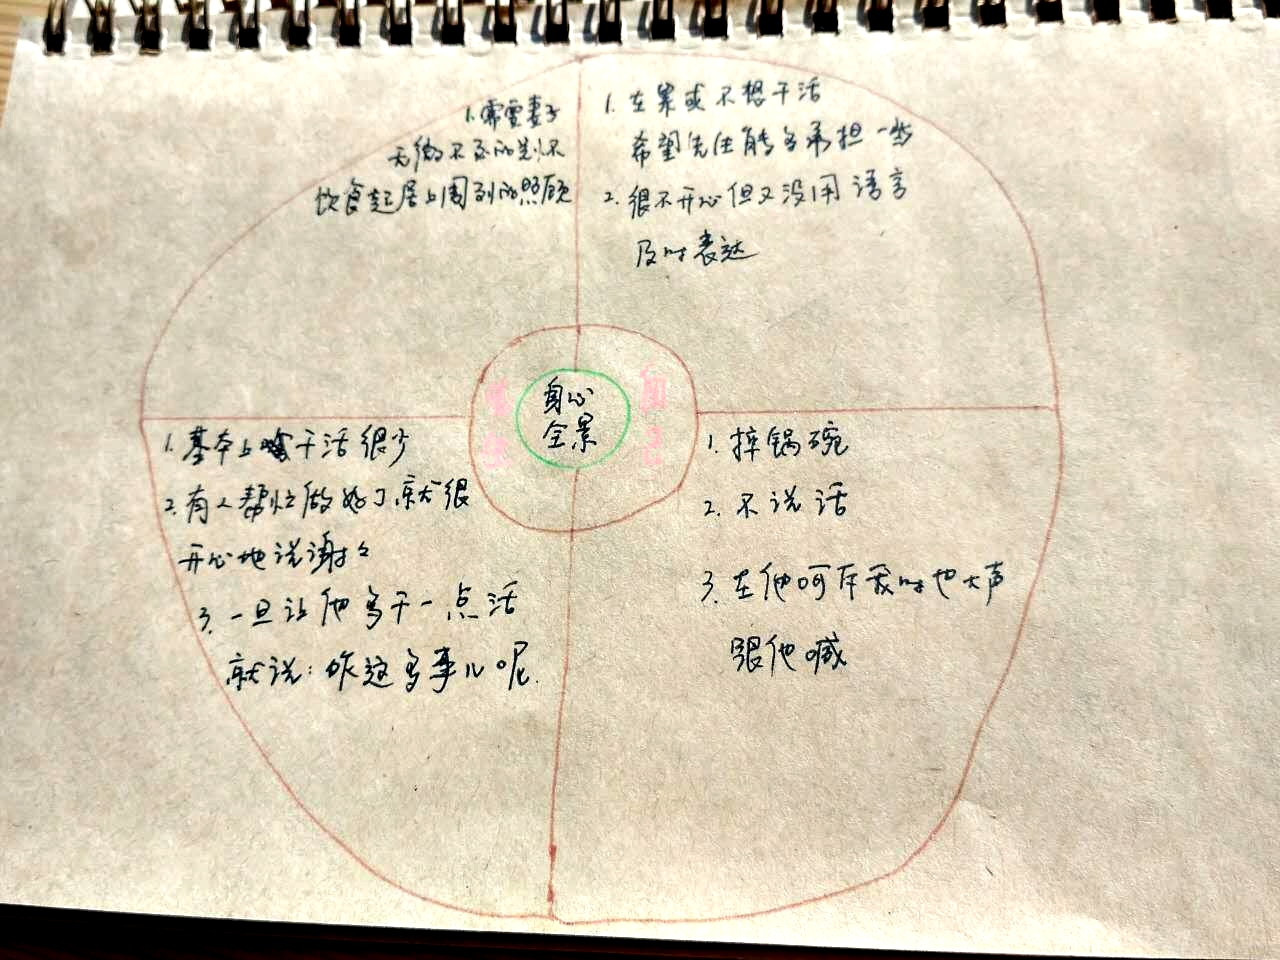 1.需要妻子
无微不至的关怀
饮食起居上周到的照顾
1.在累或不想干活
希望先生能多承担一些
2.很不开心但又没用语言
及时表达
身心
全景
先生
自己
1.基本上干活很少
2.有人帮忙做好了就很
开心地说谢々
3.一旦让他多干一点活
就说:咋这多事儿呢.
1.摔锅碗
2.不说话
3.在他呵斥我时也大声
跟他喊